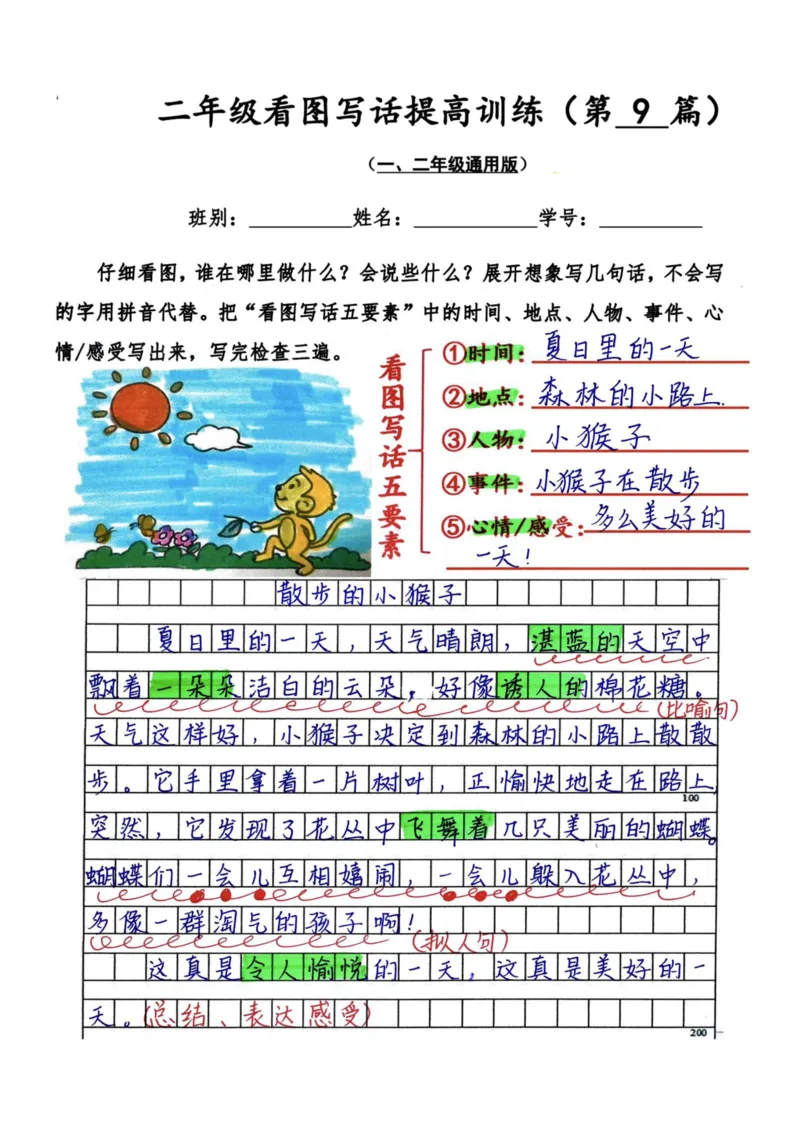 二年级看图写话提高训练（第 9 篇）
（一、二年级通用版）
班别：__________姓名：____________学号：__________
仔细看图，谁在哪里做什么？会说些什么？展开想象写几句话，不会写
的字用拼音代替。把“看图写话五要素”中的时间、地点、人物、事件、心
情/感受写出来，写完检查三遍。
看图写话五要素
①时间：夏日里的一天
②地点：森林的小路上.
③人物：小猴子
④事件：小猴子在散步
⑤心情/感受：多么美好的
一天！
散步的小猴子
夏日里的一天，天气晴朗，湛蓝的天空中
飘着一朵朵洁白的云朵，好像诱人的棉花糖。
（比喻句）
天气这样好，小猴子决定到森林的小路上散散
步。它手里拿着一片树叶，正愉快地走在路上，
100
突然，它发现了花丛中飞舞着几只美丽的蝴蝶。
蝴蝶们一会儿互相嬉闹，一会儿躲入花丛中，
多像一群淘气的孩子啊！
（拟人句）
这真是令人愉悦的一天，这真是美好的一
天。（总结、表达感受）
200